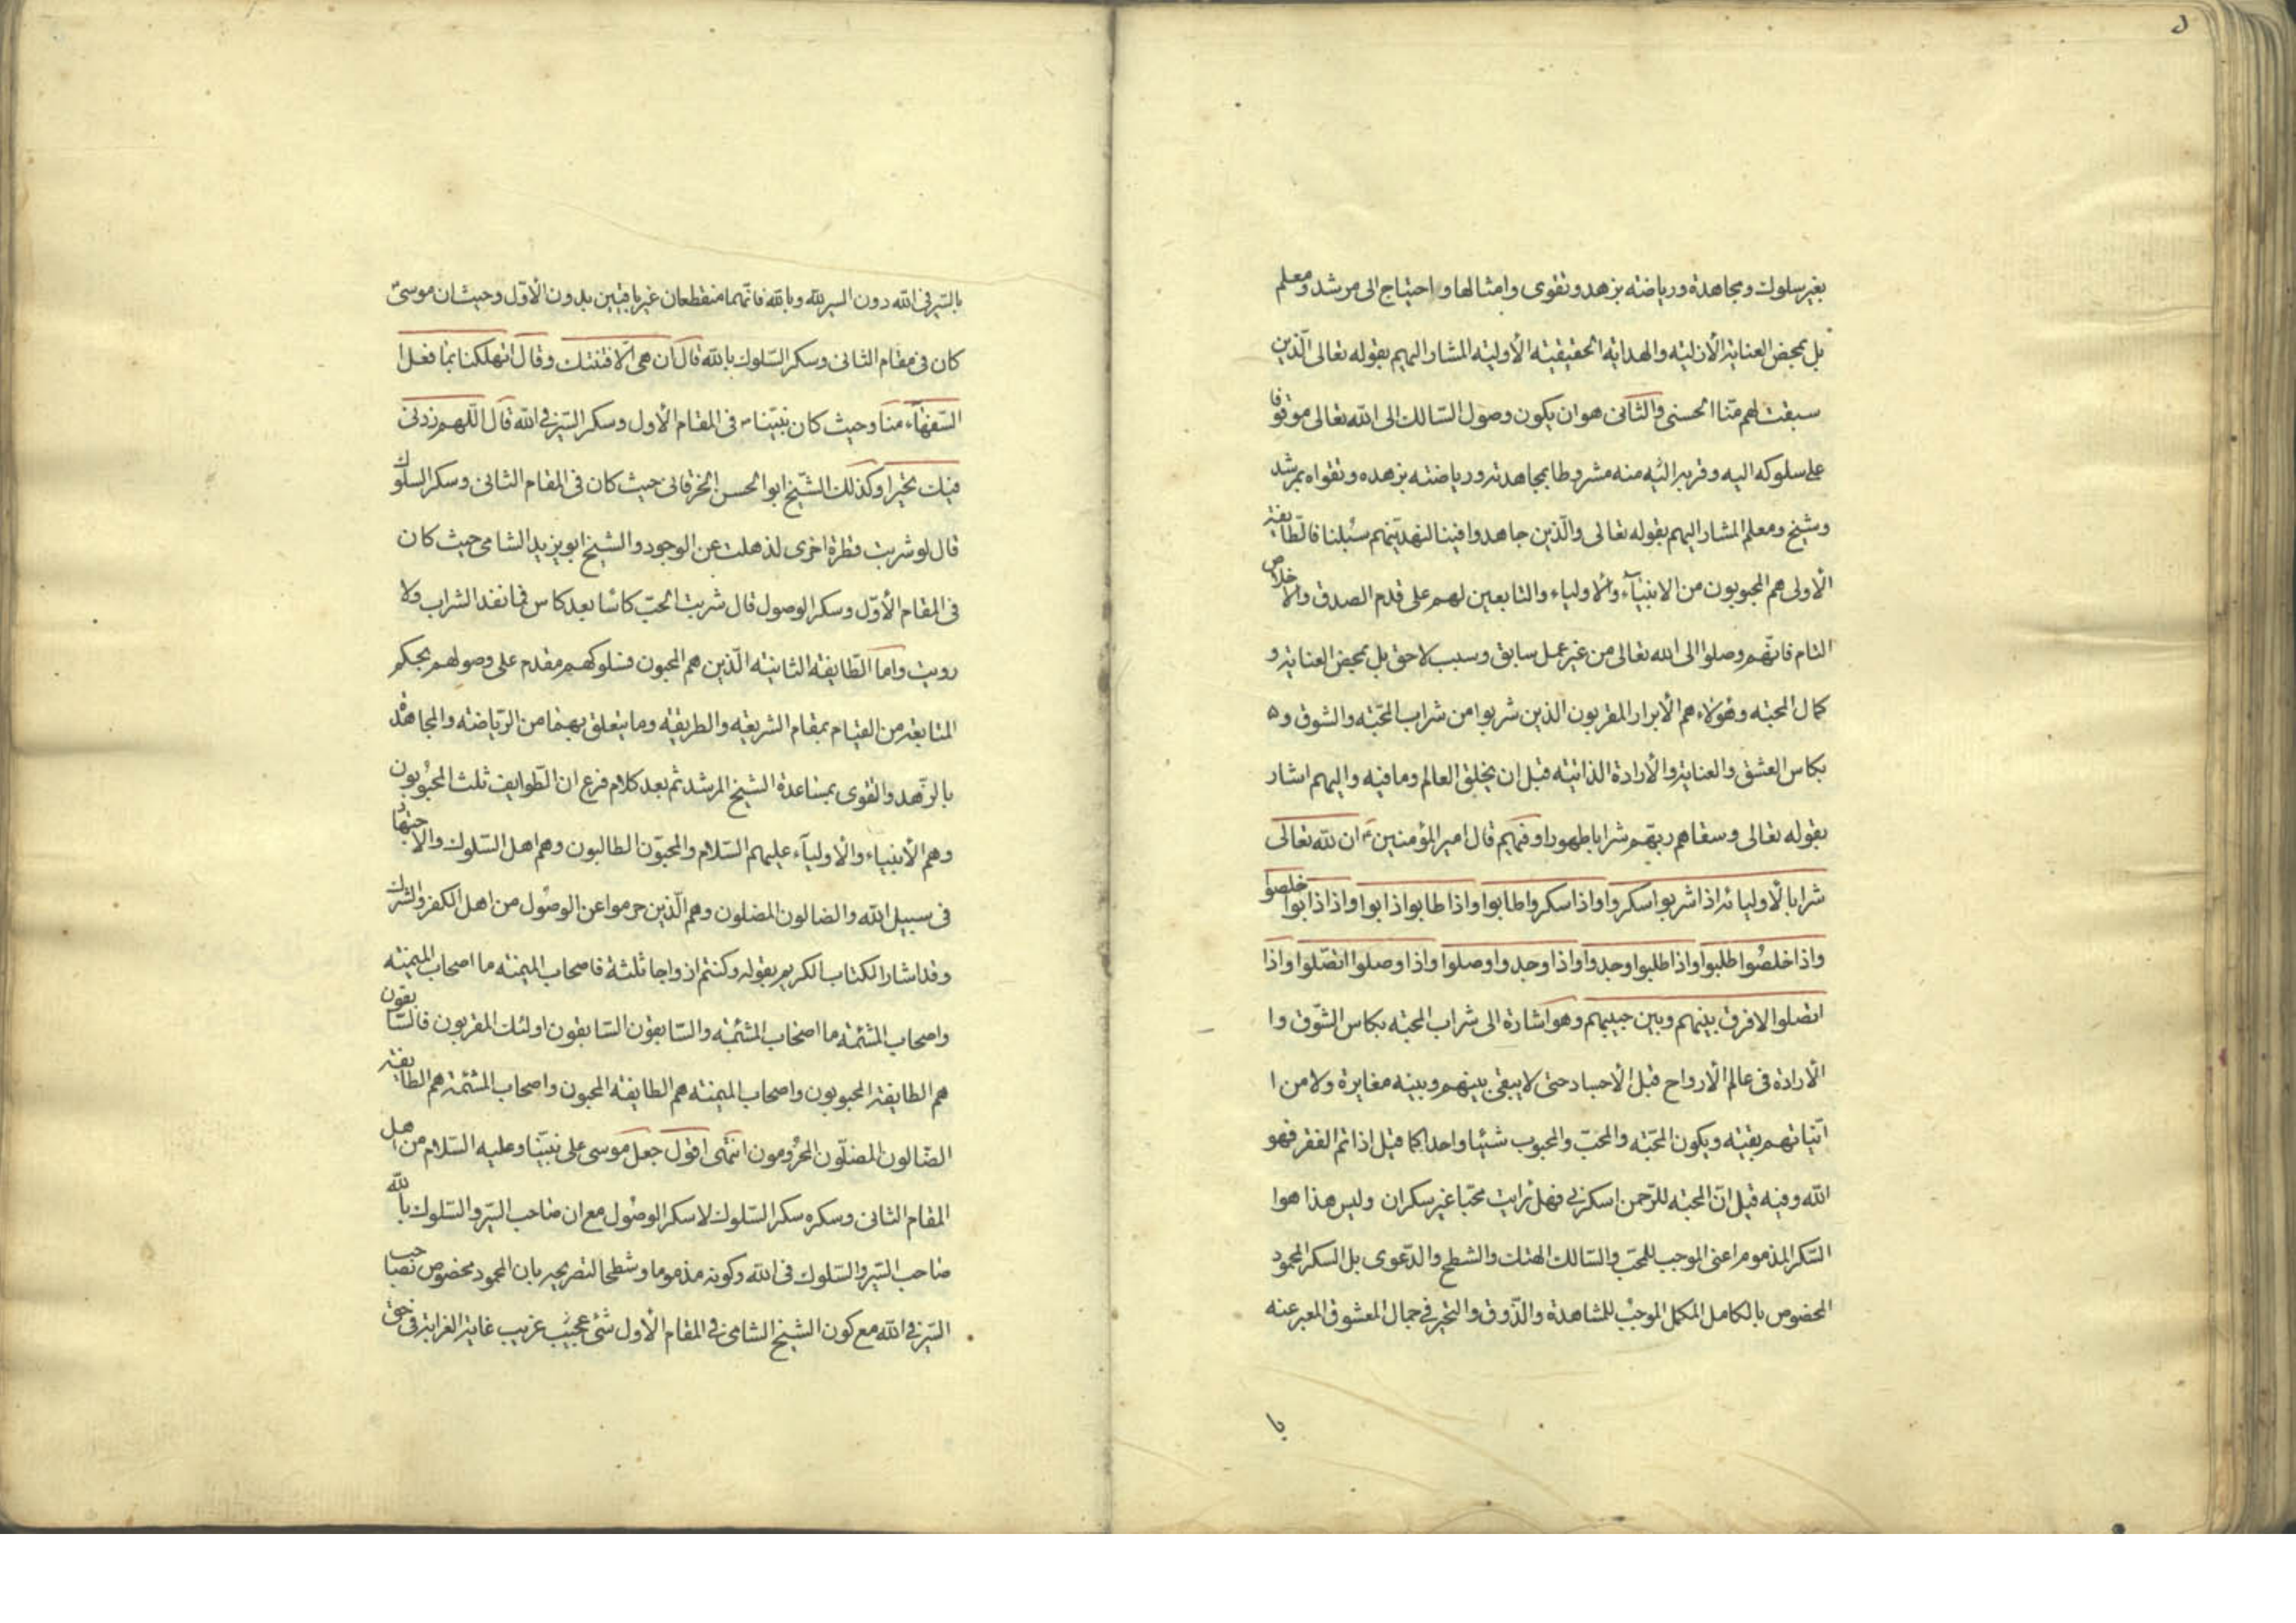 بغير سلوك ومجاهدة ورياضته بزهد وتقوى وامثالها واحتياج الى مرشد ومعلم
بل بمحض العناية الأزليته والهداية الحقيقيته الأوليته المشار اليهم بقوله تعالى الّذين
سبقت لهم منّا الحسنى والثانى هو ان يكون وصول السّالك الى الله تعالى موقوفا
على سلوكه اليه وقربه اليه منه مشروطا بمجاهدته ورياضته بزهده وتقواه بمرشد
وشيخ ومعلم المشار اليهم بقوله تعالى والّذين جاهدوا فينا لنهدينّهم سُبلنا فالطّايفة
الأولى هم المحبوبون من الانبياء والأولياء والتابعين لهم على قدم الصدق والاخلاص
التام فانّهم وصلوا الى الله تعالى من غير عمل سابق وسبب لاحق بل بمحض العناية و
كمال المحبته وهؤلاء هم الأبرار المقربون الذين شربوا من شراب المحبّته والشوق و
بكاس العشق والعناية والأرادة الذاتيته قبل ان يخلق العالم وما فيه واليهم اشار
بقوله تعالى وسقاهم ربّهم شرابا طهورا وفيهم قال امير المؤمنين ع ان لله تعالى
شرابا لأوليائه اذا شربوا سكروا واذا سكروا طابوا واذا طابوا ذابوا واذا ذابوا خلصوا
واذا خلصوا طلبوا واذا طلبوا وجدوا واذا وجدوا وصلوا واذا وصلوا اتّصلوا واذا
اتصلوا لا فرق بينهم وبين حبيبهم وهو اشارة الى شراب المحبته بكاس الشّوق وا
الأرادة فى عالم الأرواح قبل الأجساد حتى لا يبقى بينهم وبينه مغايرة ولا من ا
انّياتهم بقيته ويكون المحبّته والمحبّ والمحبوب شيئا واحدا كما قيل اذا تم الفقر فهو
الله وفيه قيل انّ المحبته للرّحمن اسكرنى فهل رايت محبّا غير سكران وليس هذا هوا
السّكر المذموم اعنى الموجب للمحبّ والسّالك الهتك والشطح والدّعوى بل السكر المحمود
المخصوص بالكامل المكمل الموجب للمشاهدة والذّوق والتحيّر فى جمال المعشوق المعبر عنه
با
بالسّير فى الله دون السير لله وبالله فانّهما منقطعان غير باقيين بدون الأوّل وحيث ان موسى
كان فى مقام الثانى وسكر السّلوك بالله قال ان هى الّا فتنتك وقال اتهلكنا بما فعل ا
السّفهاء منا وحيث كان نبيّنا ص فى المقام الأول وسكر السّير فى الله قال اللّهم زدنى
فيك تحيرا وكذلك الشّيخ ابو الحسن الخرقانى حيث كان فى المقام الثانى وسكر السلوك
قال لو شربت قطرة اخرى لذهلت عن الوجود والشيخ ابو يزيد الشامى حيث كان
فى المقام الأوّل وسكر الوصول قال شربت الحبّ كاسًا بعد كاس فما نفد الشراب ولا
رويت واما الطّايفة الثانيته الّذين هم المحبون فسلوكهم مقدم على وصولهم بحكم
المتابعة من القيام بمقام الشريعه والطريقه وما يتعلق بهما من الرّياضته والمجاهدة
بالزّهد والتقوى بمساعدة الشيخ المرشد ثم بعد كلام فرع ان الطّوايف ثلث المحبوبون
وهم الأنبياء والأولياء عليهم السّلام والمحبّون الطالبون وهم اهل السّلوك والاجتهاد
فى سبيل الله والضالون المضلون وهم الّذين حرموا عن الوصول من اهل الكفر والشرك
وقد اشار الكتاب الكريم بقوله وكنتم ازواجا ثلثة فاصحاب الميمنته ما اصحاب الميمنته
واصحاب المشئمته ما اصحاب المشئمته والسّابقون السّابقون اولئك المقربون فالسّابقون
هم الطايفة المحبوبون واصحاب الميمنته هم الطايفة المحبون واصحاب المشئمة هم الطايفة
الضّالون المضلّون المحرومون انتهى اقول جعل موسى على نبيّنا وعليه السّلام من اهل
المقام الثانى وسكره سكر السّلوك لا سكر الوصول مع ان صاحب السّير والسّلوك بالله
صاحب السّير والسّلوك فى الله وكونه مذموما وشطحا لتصريحه بان المحمود مخصوص بصاحب
السّير فى الله مع كون الشيخ الشامى فى المقام الأول شئ عجيب غريب غاية الغرابة فى حق